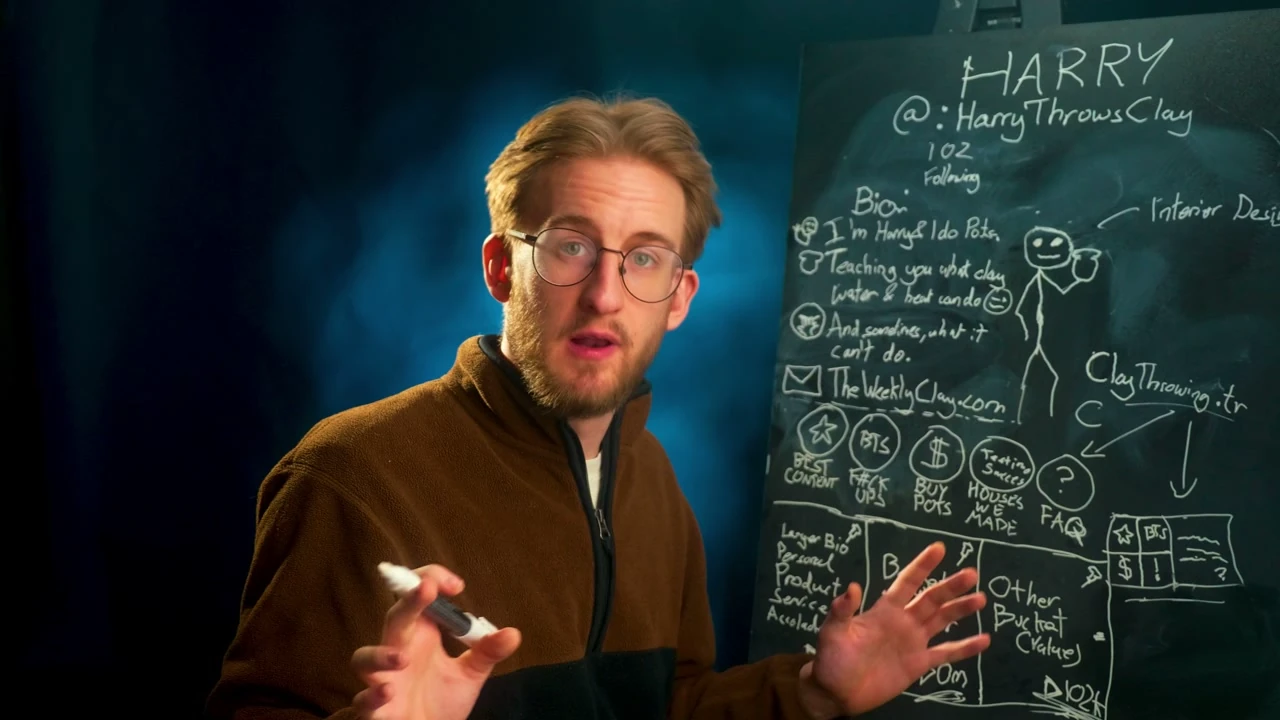 HARRY
@: HarryThrowsClay
102
Following
Bio:
I'm Harry & I do Pots.
Teaching you what clay
water & heat can do
And sometimes, what it
can't do.
TheWeeklyClay.com
Interior Desi
ClayThrowing.tr
C
BTS
$
?
BEST
CONTENT
F#CK
UPS
BUY
POTS
HOUSES
WE
MADE
FAQ
Larger Bio
Personal
Product
Service
Accolad
B
Other
Bucket
(Values)
102K
BTS
$
!
?